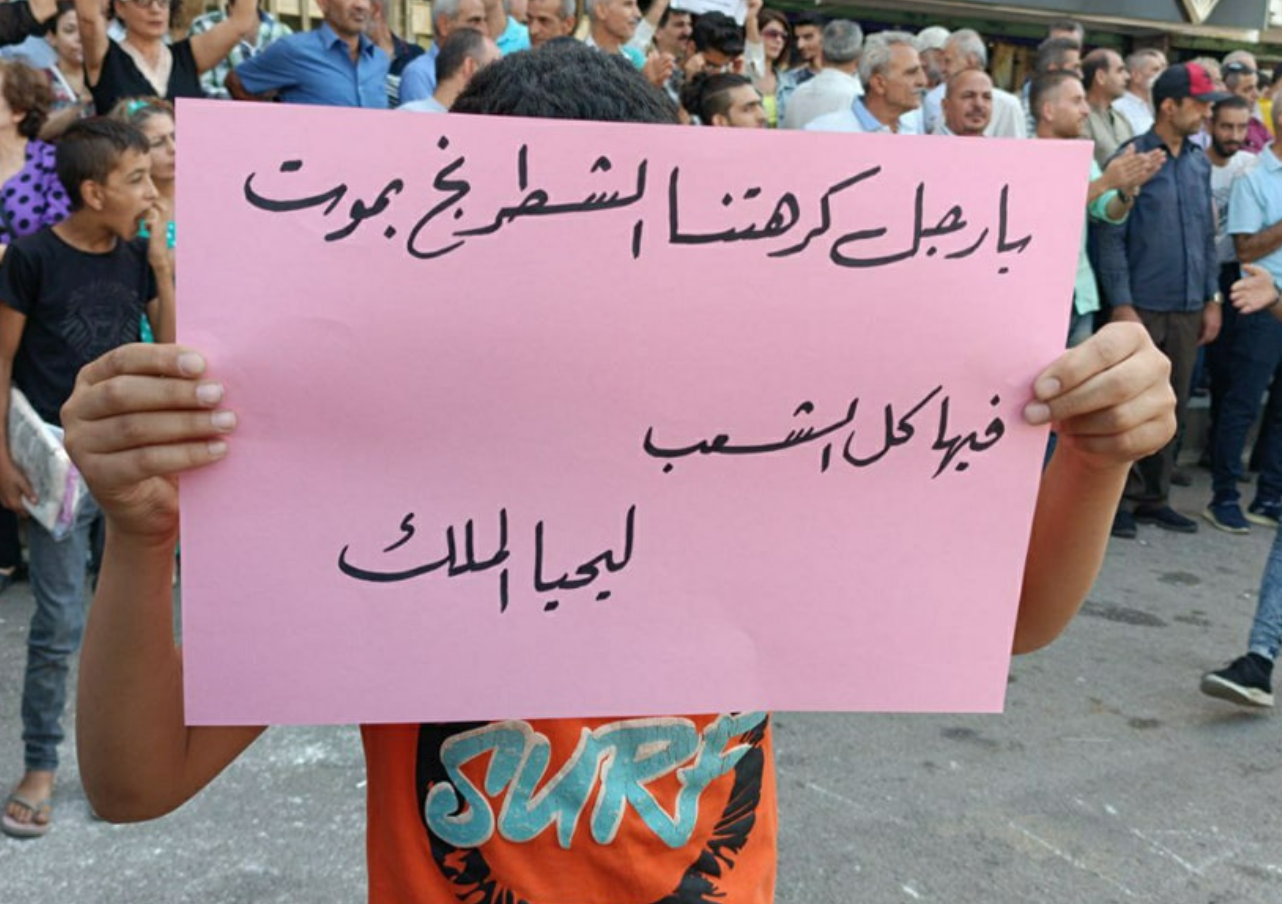 يا رجل كرهتنا الشطرنج بموت
فيها كل الشعب
ليحيا الملك
SURF